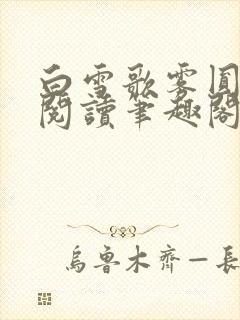 白雪歌雾圆
閱讀笔趣閣
烏魯木齊一長